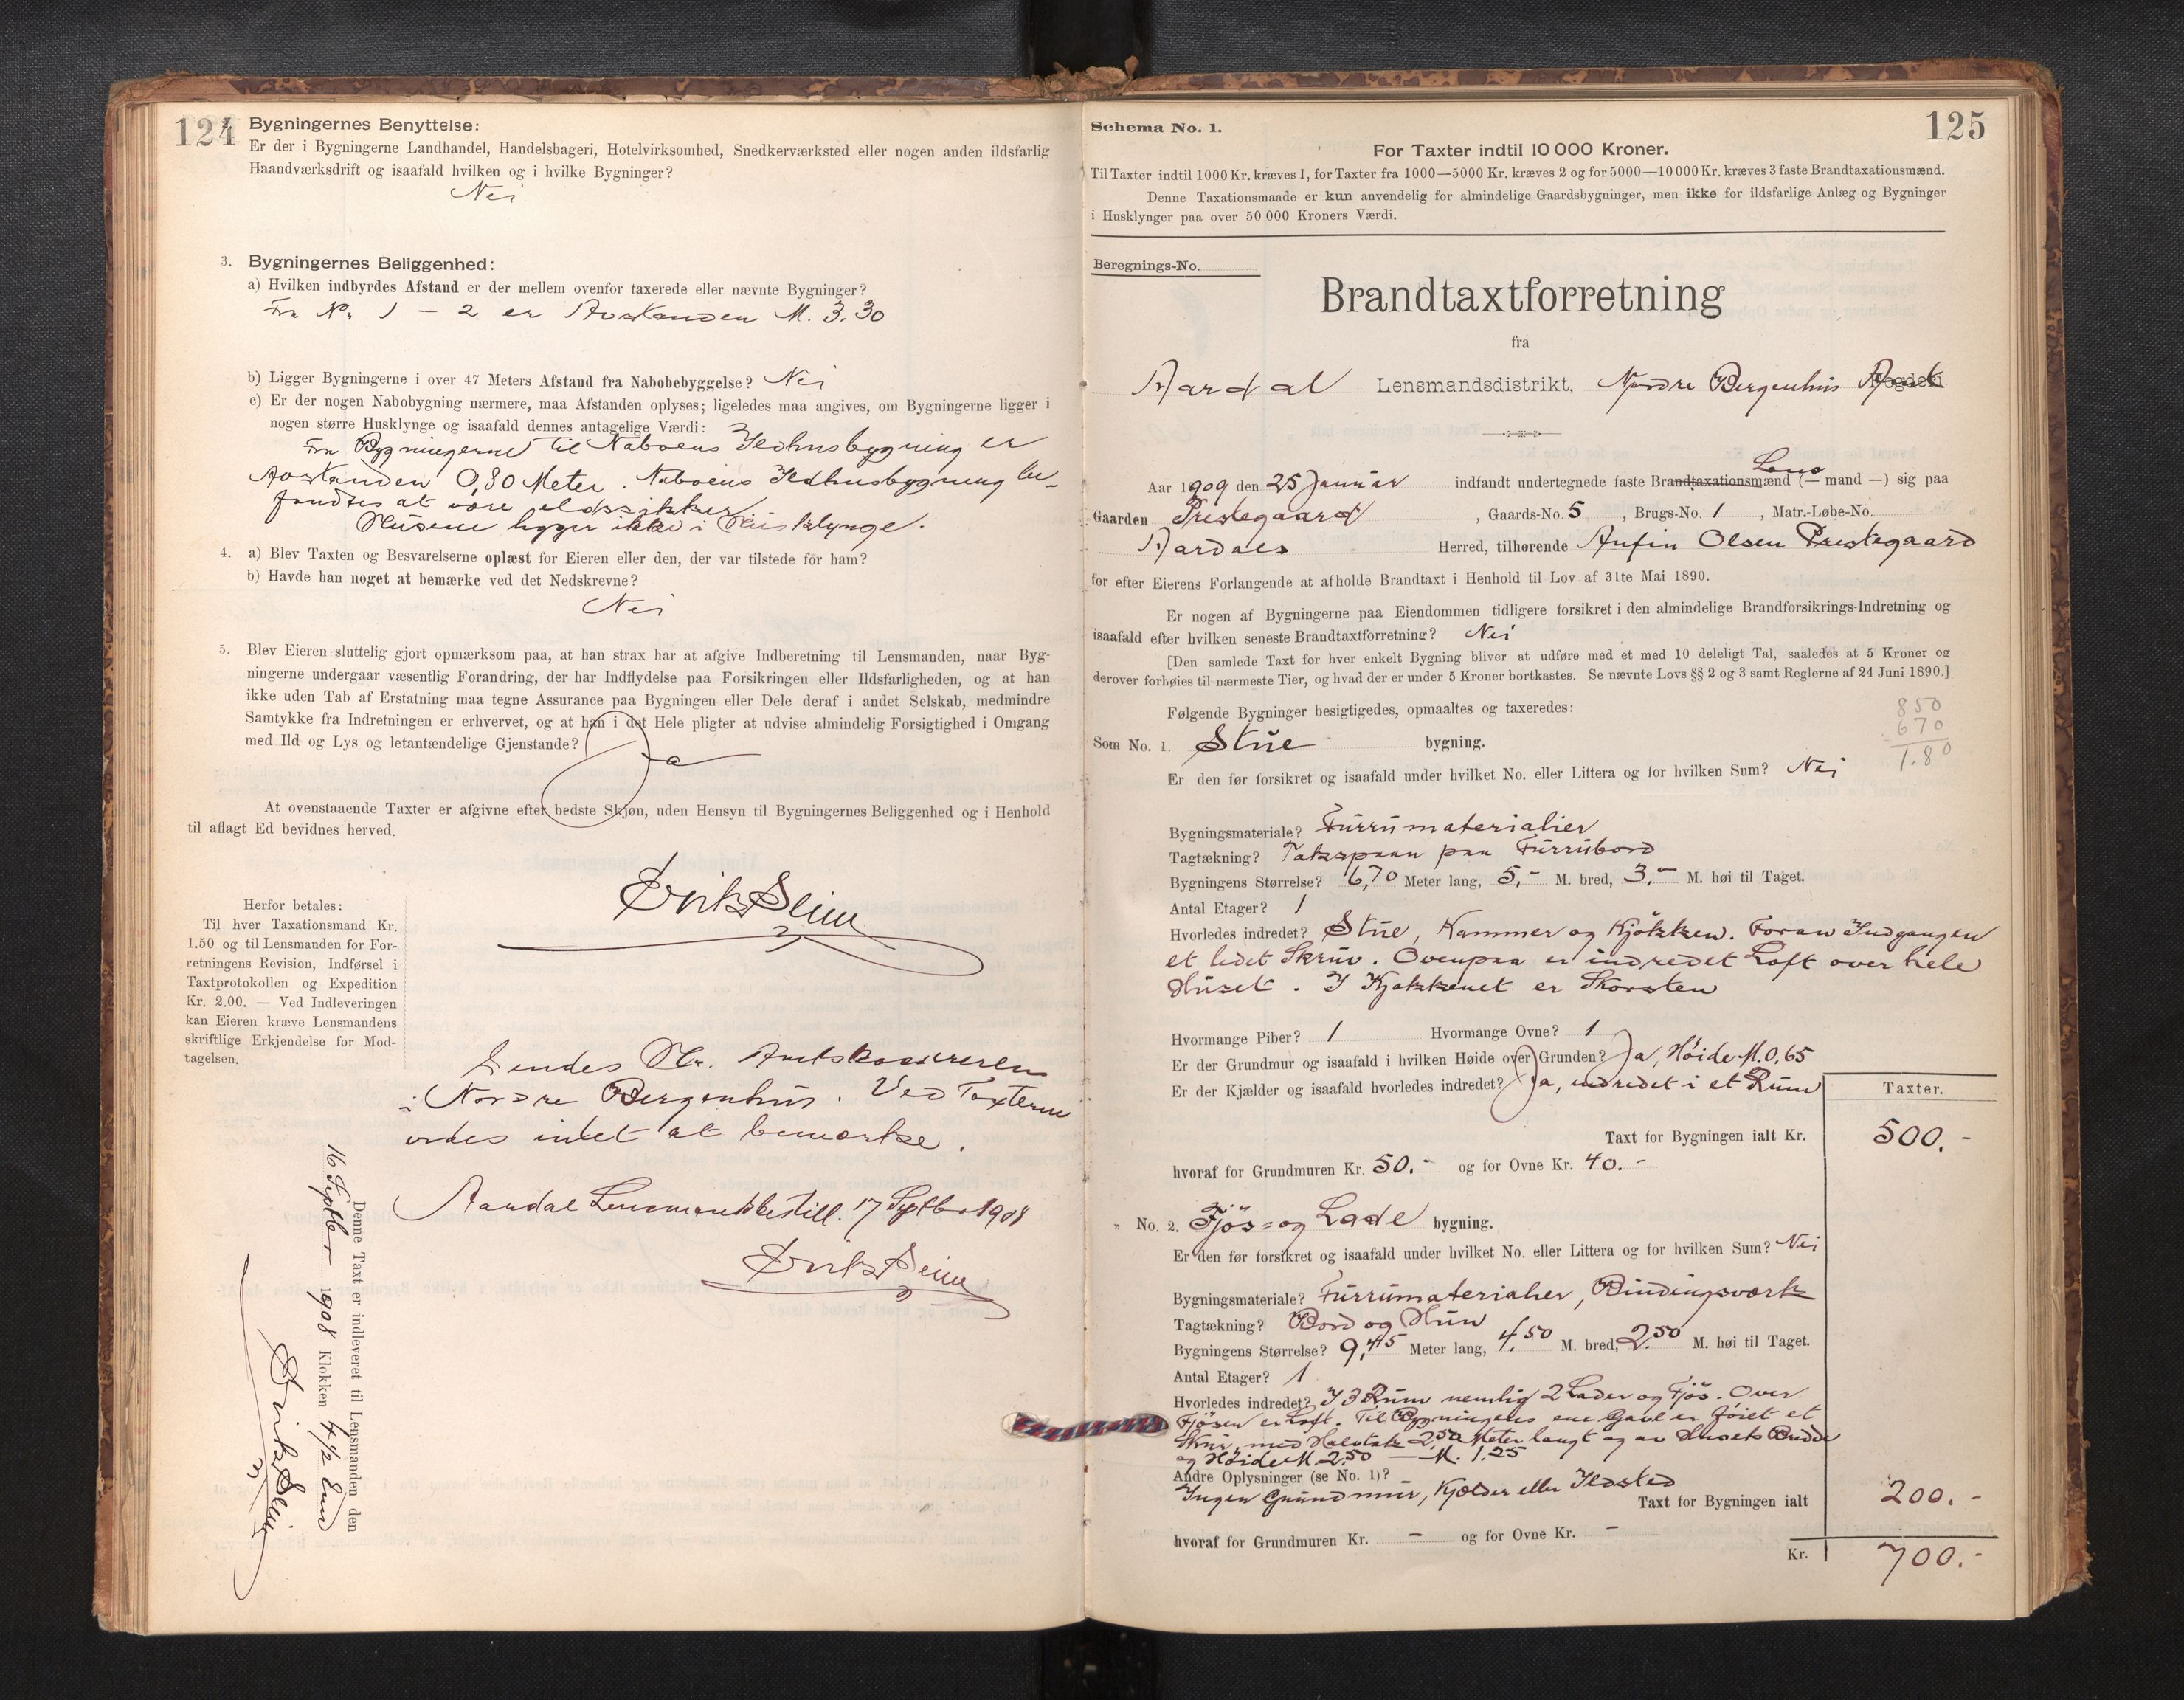 124
2. Bygningernes Benyttelse:
Er der i Bygningerne Landhandel, Handelsbageri, Hotelvirksomhed, Snedkerværksted eller nogen anden ildsfarlig
Haandværksdrift og isaafald hvilken og i hvilke Bygninger?
Nei
3. Bygningernes Beliggenhed:
a) Hvilken indbyrdes Afstand er der mellem ovenfor taxerede eller nævnte Bygninger?
Fra Nr 1 – 2 er Avstanden M. 3.30
b) Ligger Bygningerne i over 47 Meters Afstand fra Nabobebyggelse? Nei
c) Er der nogen Nabobygning nærmere, maa Afstanden oplyses; ligeledes maa angives, om Bygningerne ligger i
nogen større Husklynge og isaafald dennes antagelige Værdi:
Fra Bygningerne til Naboens Ildhusbygning er
Avstanden 0,80 Meter. Naboens Ildhusbygning be-
fandtes at være eldssikker
Husene ligger ikke i Husklynge.
4. a) Blev Taxten og Besvarelserne oplæst for Eieren eller den, der var tilstede for ham?
b) Havde han noget at bemærke ved det Nedskrevne?
Nei
5. Blev Eieren sluttelig gjort opmærksom paa, at han strax har at afgive Indberetning til Lensmanden, naar Byg-
ningerne undergaar væsentlig Forandring, der har Indflydelse paa Forsikringen eller Ildsfarligheden, og at han
ikke uden Tab af Erstatning maa tegne Assurance paa Bygningen eller Dele deraf i andet Selskab, medmindre
Samtykke fra Indretningen er erhvervet, og at han i det Hele pligter at udvise almindelig Forsigtighed i Omgang
med Ild og Lys og letantændelige Gjenstande?
Ja
At ovenstaaende Taxter er afgivne efter bedste Skjøn, uden Hensyn til Bygningernes Beliggenhed og i Henhold
til aflagt Ed bevidnes herved.
Erik Seim
Herfor betales:
Til hver Taxationsmand Kr.
1.50 og til Lensmanden for For-
retningens Revision, Indførsel i
Taxtprotokollen og Expedition
Kr. 2.00. — Ved Indleveringen
kan Eieren kræve Lensmandens
skriftlige Erkjendelse for Mod-
tagelsen.
Sendes Hr. Amtskassereren
i Nordre Bergenhus. Ved Taxterne
vides intet at bemærke.
Aardal Lensmandsbestill. 17 Septbr 1908
Erik Seim
Denne Taxt er indleveret til Lensmanden den
16 Septbr 1908 Klokken 4 1/2 Emd
Erik Seim
125
Schema No. 1.
For Taxter indtil 10 000 Kroner.
Til Taxter indtil 1000 Kr. kræves 1, for Taxter fra 1000—5000 Kr. kræves 2 og for 5000—10 000 Kr. kræves 3 faste Brandtaxationsmænd.
Denne Taxationsmaade er kun anvendelig for almindelige Gaardsbygninger, men ikke for ildsfarlige Anlæg og Bygninger
i Husklynger paa over 50 000 Kroners Værdi.
Beregnings-No.
Brandtaxtforretning
fra
Aardal Lensmandsdistrikt, Nordre Bergenhus Amt Fogderi
Lens
Aar 1909 den 25 Januar indfandt undertegnede faste Brandtaxationsmænd (— mand —) sig paa
Gaarden Prestegaard, Gaards-No. 5, Brugs-No. 1, Matr.-Løbe-No.
Aardals Herred, tilhørende Anfin Olsen Prestegaard
for efter Eierens Forlangende at afholde Brandtaxt i Henhold til Lov af 31te Mai 1890.
Er nogen af Bygningerne paa Eiendommen tidligere forsikret i den almindelige Brandforsikrings-Indretning og
isaafald efter hvilken seneste Brandtaxtforretning? Nei
[Den samlede Taxt for hver enkelt Bygning bliver at udføre med et med 10 deleligt Tal, saaledes at 5 Kroner og
derover forhøies til nærmeste Tier, og hvad der er under 5 Kroner bortkastes. Se nævnte Lovs §§ 2 og 3 samt Reglerne af 24 Juni 1890.]
Følgende Bygninger besigtigedes, opmaaltes og taxeredes:
850
670
1.80
Som No. 1. Stue bygning.
Er den før forsikret og isaafald under hvilket No. eller Littera og for hvilken Sum? Nei
Bygningsmateriale? Furrumaterialier
Tagtækning? Takspaan paa Furrubord
Bygningens Størrelse? 6,70 Meter lang, 5,- M. bred, 3,- M. høi til Taget.
Antal Etager? 1
Hvorledes indredet? Stue, Kammer og Kjøkken. Foran Indgangen
et lidet Skruv. Ovenpaa er indredet Loft over hele
Huset. I Kjøkkenet er Skorsten
Hvormange Piber? 1 Hvormange Ovne? 1
Er der Grundmur og isaafald i hvilken Høide over Grunden? Ja, Høide M. 0,65
Er der Kjælder og isaafald hvorledes indredet? Ja, indredet i et Rum
Taxter.
Taxt for Bygningen ialt Kr. 500.-
hvoraf for Grundmuren Kr. 50.- og for Ovne Kr. 40.-
" No. 2. Fjös- og Lade bygning.
Er den før forsikret og isaafald under hvilket No. eller Littera og for hvilken Sum? Nei
Bygningsmateriale? Furrumaterialier, Bindingsværk
Tagtækning? Bord og Hun
Bygningens Størrelse? 9,45 Meter lang, 4,50 M. bred, 2,50 M. høi til Taget.
Antal Etager? 1
Hvorledes indredet? I 3 Rum nemlig 2 Lader og Fjös. Over
Fjösen er Loft. Til Bygningens ene Gavl er föiet et
Skur med Halvtak 2,50 Meter langt og av Husets Bredde
og Høide M. 2,50 — M. 1,25
Andre Oplysninger (se No. 1)?
Ingen Grundmur, Kjælder eller Ildsted
Taxt for Bygningen ialt 200.-
hvoraf for Grundmuren Kr. – og for Ovne Kr. –
Kr. 700.-